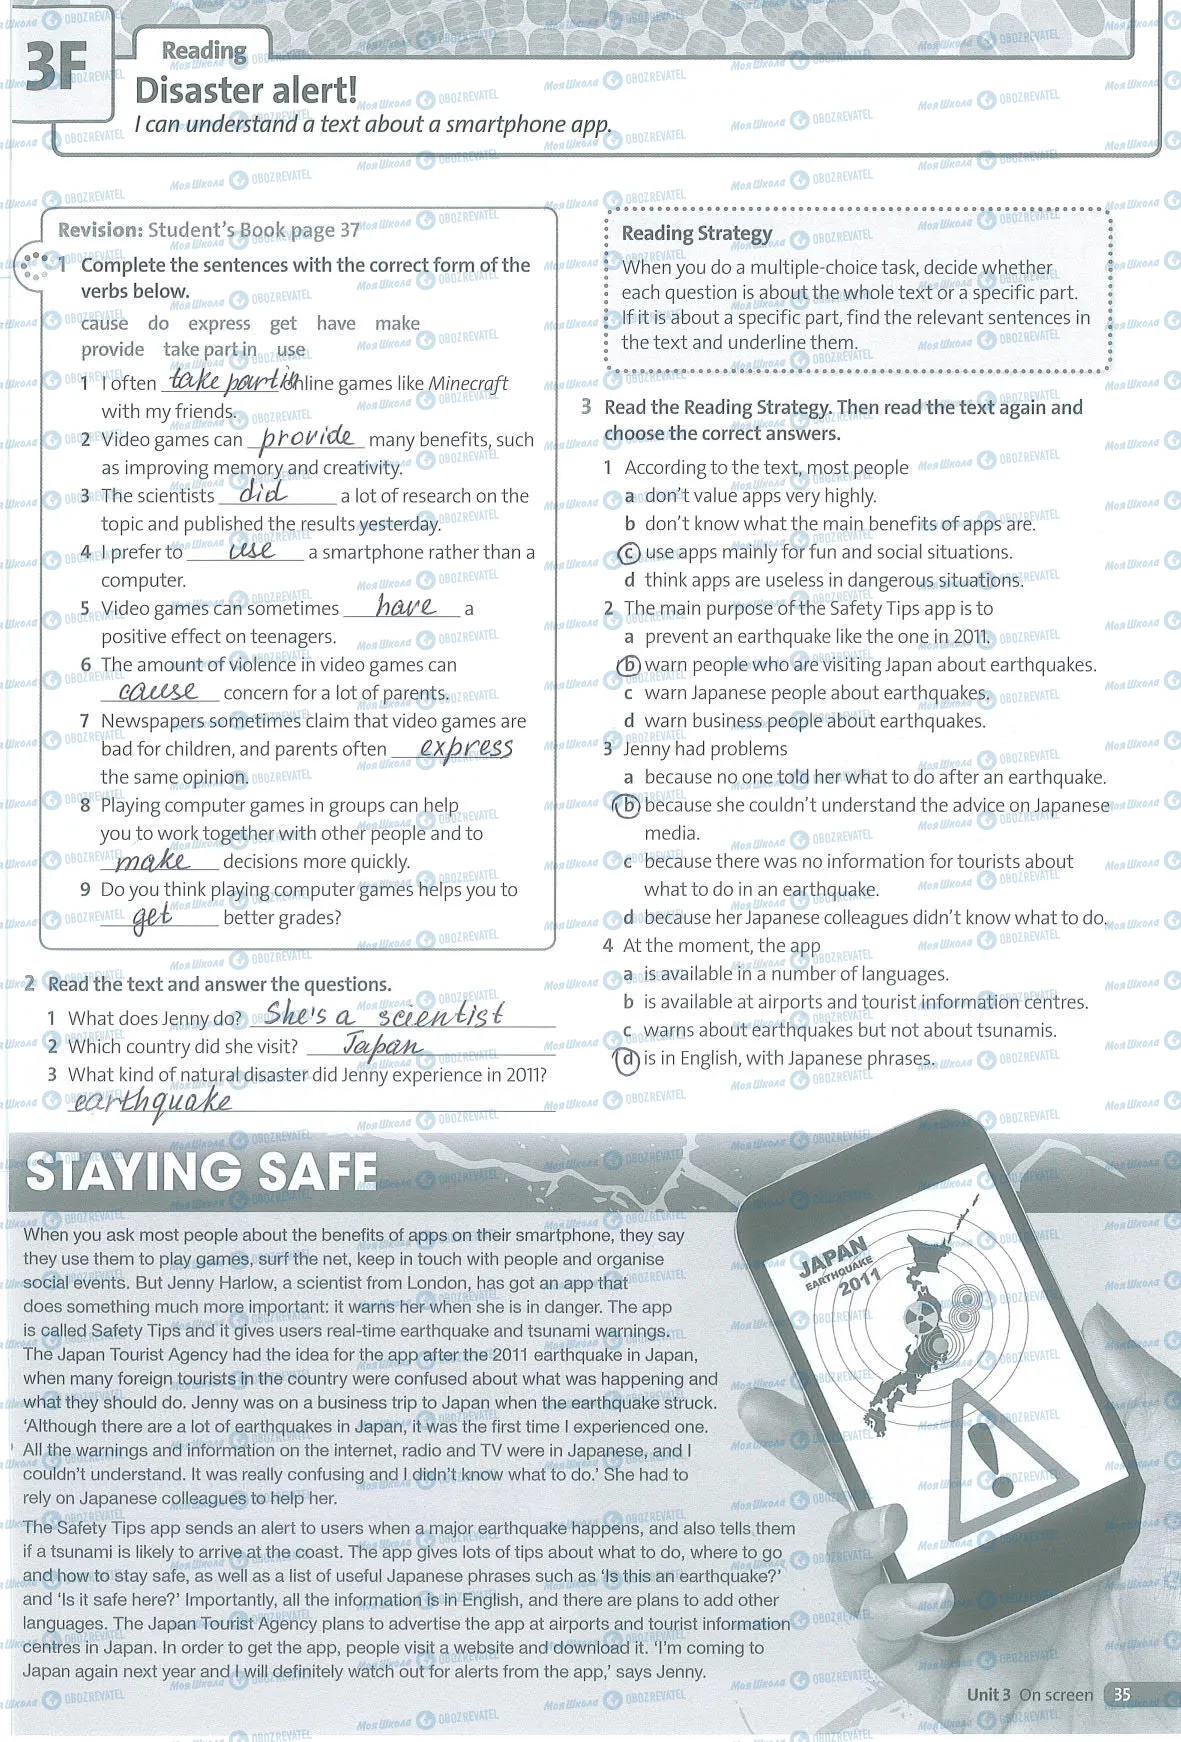 3F
Reading
Disaster alert!
I can understand a text about a smartphone app.
Revision: Student's Book page 37
1 Complete the sentences with the correct form of the
verbs below.
cause do express get have make
provide take part in use
1 I often take part in online games like Minecraft
with my friends.
2 Video games can provide many benefits, such
as improving memory and creativity.
3 The scientists did a lot of research on the
topic and published the results yesterday.
4 I prefer to use a smartphone rather than a
computer.
5 Video games can sometimes have a
positive effect on teenagers.
6 The amount of violence in video games can
cause concern for a lot of parents.
7 Newspapers sometimes claim that video games are
bad for children, and parents often express
the same opinion.
8 Playing computer games in groups can help
you to work together with other people and to
make decisions more quickly.
9 Do you think playing computer games helps you to
get better grades?
2 Read the text and answer the questions.
1 What does Jenny do? She's a scientist
2 Which country did she visit? Japan
3 What kind of natural disaster did Jenny experience in 2011?
earthquake
Reading Strategy
When you do a multiple-choice task, decide whether
each question is about the whole text or a specific part.
If it is about a specific part, find the relevant sentences in
the text and underline them.
3 Read the Reading Strategy. Then read the text again and
choose the correct answers.
1 According to the text, most people
a don't value apps very highly.
b don't know what the main benefits of apps are.
c use apps mainly for fun and social situations.
d think apps are useless in dangerous situations.
2 The main purpose of the Safety Tips app is to
a prevent an earthquake like the one in 2011.
b warn people who are visiting Japan about earthquakes.
c warn Japanese people about earthquakes.
d warn business people about earthquakes.
3 Jenny had problems
a because no one told her what to do after an earthquake.
b because she couldn't understand the advice on Japanese
media.
c because there was no information for tourists about
what to do in an earthquake.
d because her Japanese colleagues didn't know what to do.
4 At the moment, the app
a is available in a number of languages.
b is available at airports and tourist information centres.
c warns about earthquakes but not about tsunamis.
d is in English, with Japanese phrases.
STAYING SAFE
When you ask most people about the benefits of apps on their smartphone, they say
they use them to play games, surf the net, keep in touch with people and organise
social events. But Jenny Harlow, a scientist from London, has got an app that
does something much more important: it warns her when she is in danger. The app
is called Safety Tips and it gives users real-time earthquake and tsunami warnings.
The Japan Tourist Agency had the idea for the app after the 2011 earthquake in Japan,
when many foreign tourists in the country were confused about what was happening and
what they should do. Jenny was on a business trip to Japan when the earthquake struck.
'Although there are a lot of earthquakes in Japan, it was the first time I experienced one.
All the warnings and information on the internet, radio and TV were in Japanese, and I
couldn't understand. It was really confusing and I didn't know what to do.' She had to
rely on Japanese colleagues to help her.
The Safety Tips app sends an alert to users when a major earthquake happens, and also tells them
if a tsunami is likely to arrive at the coast. The app gives lots of tips about what to do, where to go
and how to stay safe, as well as a list of useful Japanese phrases such as 'Is this an earthquake?'
and 'Is it safe here?' Importantly, all the information is in English, and there are plans to add other
languages. The Japan Tourist Agency plans to advertise the app at airports and tourist information
centres in Japan. In order to get the app, people visit a website and download it. 'I'm coming to
Japan again next year and I will definitely watch out for alerts from the app,' says Jenny.
JAPAN
EARTHQUAKE
2011
Unit 3 On screen 35
Моя Школа OBOZREVATEL